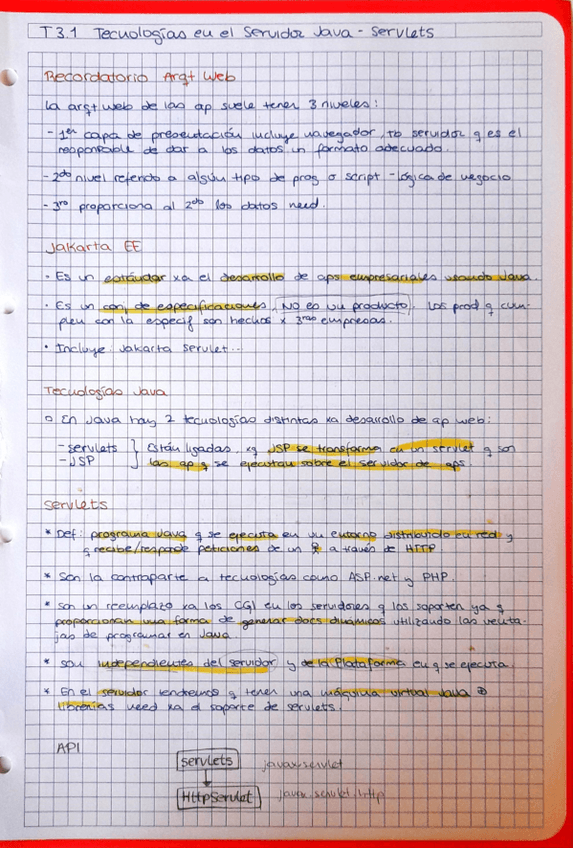 T 3.1 Tecnologías en el Servidor Java - Servlets
Recordatorio Arqt Web
La arqt web de las ap suele tener 3 niveles:
- 1er capa de presentación incluye navegador, tb servidor q es el
responsable de dar a los datos un formato adecuado.
- 2do nivel referido a algún tipo de prog o script - lógica de negocio
- 3ro proporciona al 2do los datos need.
Jakarta EE
· Es un estándar xa el desarrollo de aps empresariales usando Java.
· Es un conj de especificaciones, NO es un producto. Los prod q cum-
plen con la especif son hechos x 3ras empresas.
· Incluye: Jakarta Servlet...
Tecnologías Java
o En Java hay 2 tecnologías distintas xa desarollo de ap web:
- servlets } Están ligadas, xq JSP se transforma en un servlet q son
- JSP } las ap q se ejecutan sobre el servidor de aps.
Servlets
* Def: programa Java q se ejecuta en un entorno distribuido en red y
q recibe/responde peticiones de un a través de HTTP
* Son la contraparte a tecnologías como ASP.net y PHP.
* Son un reemplazo xa los CGI en los servidores q los soporten ya q
proporcionan una forma de generar docs dinámicos utilizando las venta-
jas de programar en Java.
* Son independientes del servidor y de la Plataforma en q se ejecuta.
* En el servidor tendremos q tener una máquina virtual Java ⊕
librerías need xa el soporte de servlets.
API
servlets javax.servlet
HttpServlet javax.servlet.http